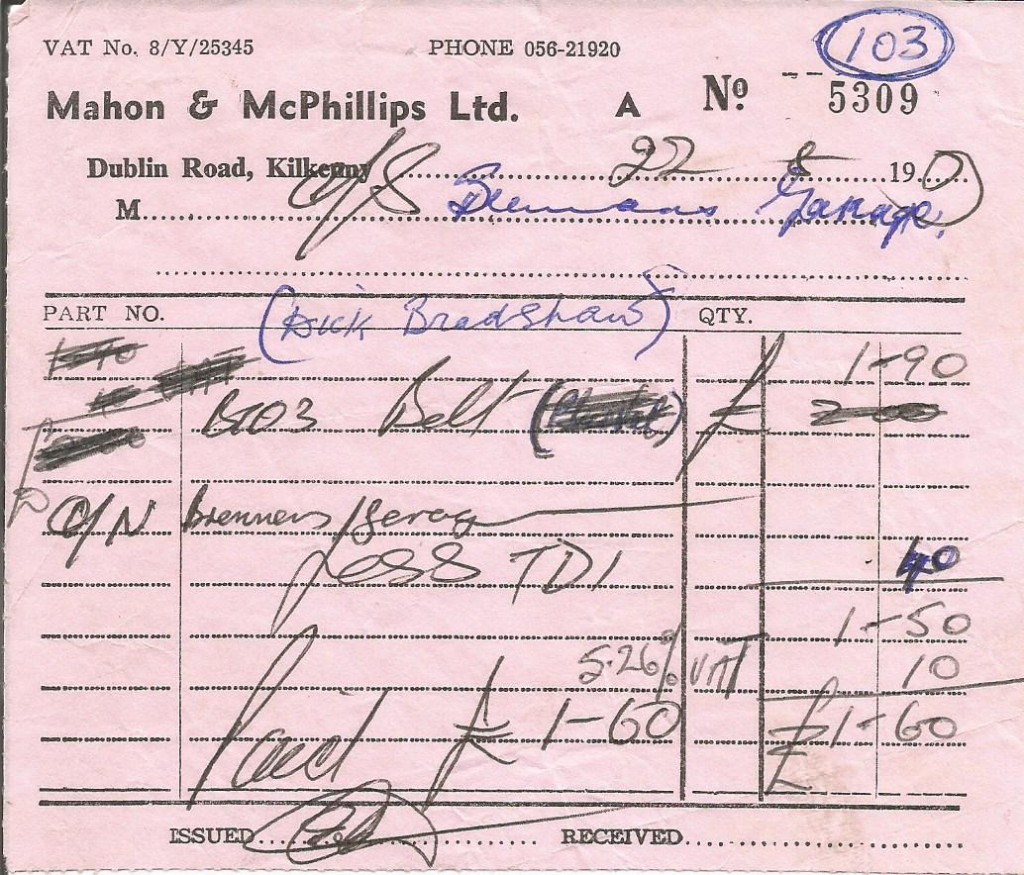 VAT No. 8/Y/25345 PHONE 056-21920 103
Mahon & McPhillips Ltd. A Nº 5309
Dublin Road, Kilkenny 22 8 19
M C/S Garage,
PART NO. (Dick Bradshaw) QTY.
1-90
Belt £
O/N Brennens Garage
Less TDI 40
1-50
5.26% VAT 10
Paid £1-60 £1-60
ISSUED RECEIVED